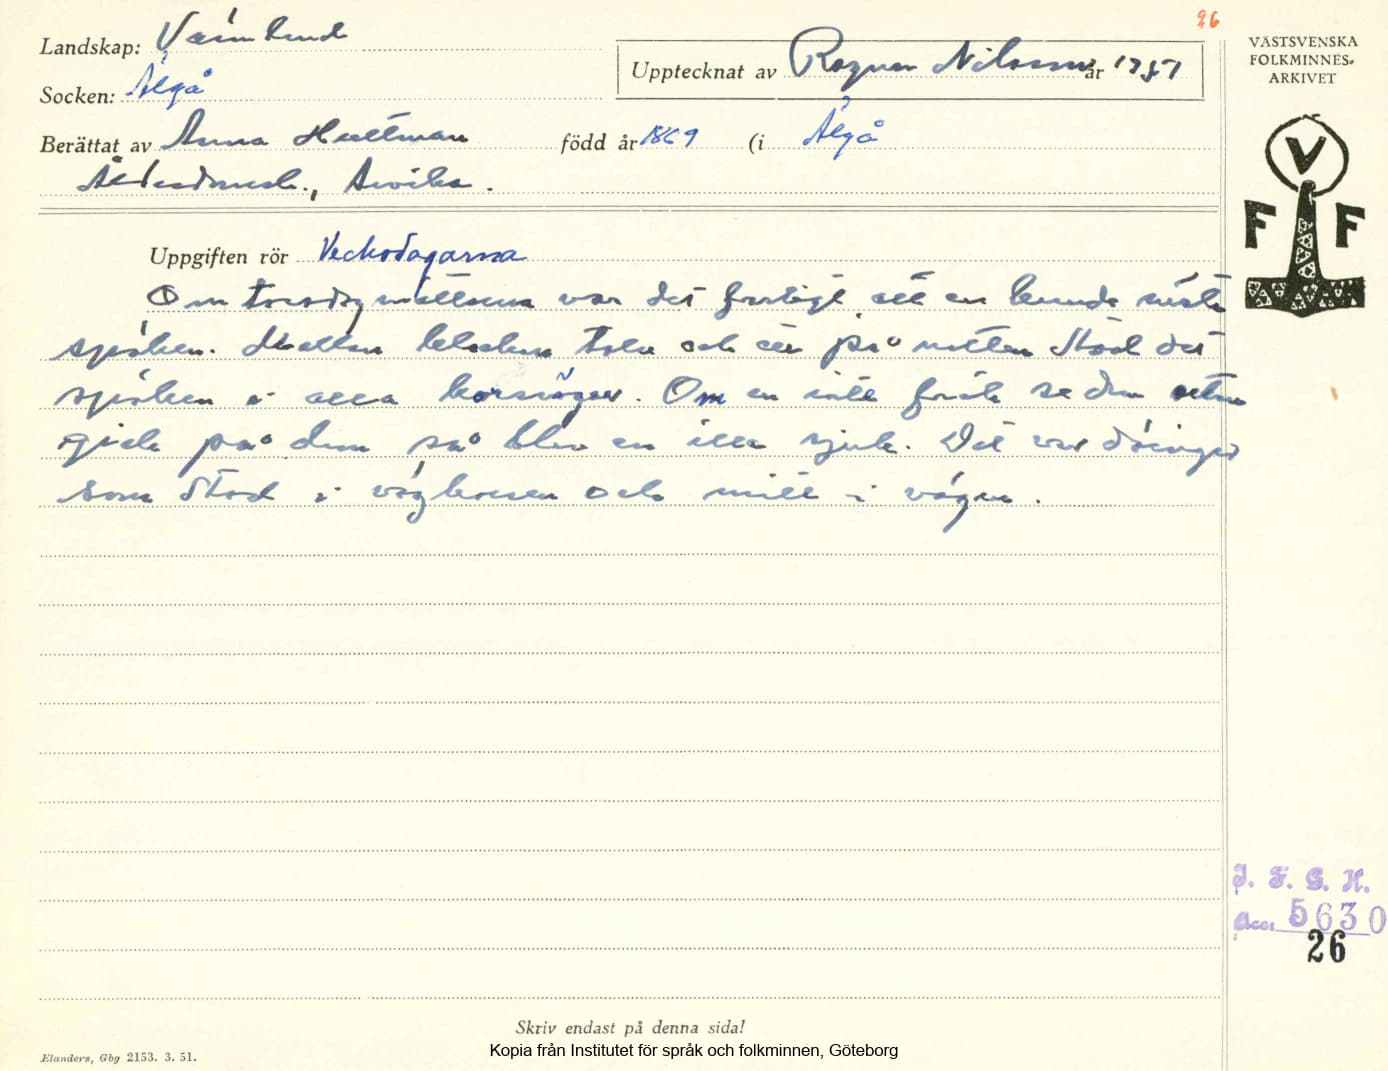 26
Landskap: Värmland
Upptecknat av Ragnar Nilsson år 1951
VÄSTSVENSKA
FOLKMINNES-
ARKIVET
Socken: Älgå
Berättat av Anna Hultman född år 1869 (i Älgå
Ålderdomsh., Arvika.
V
F F
Uppgiften rör Veckodagarna
Om torsdagsnätterna var det farligt att en kunde möta
spöken. Mellan klockan tolv och ett på natten stod det
spöken i alla korsvägar. Om en inte fick se dem utan
gick på dem så blev en illa sjuk. Det var döingar
som stod i vägkorsen och mitt i vägen.
I. F. G. H.
Acc: 5630
26
Skriv endast på denna sida!
Elanders, Gbg 2153. 3. 51.
Kopia från Institutet för språk och folkminnen, Göteborg